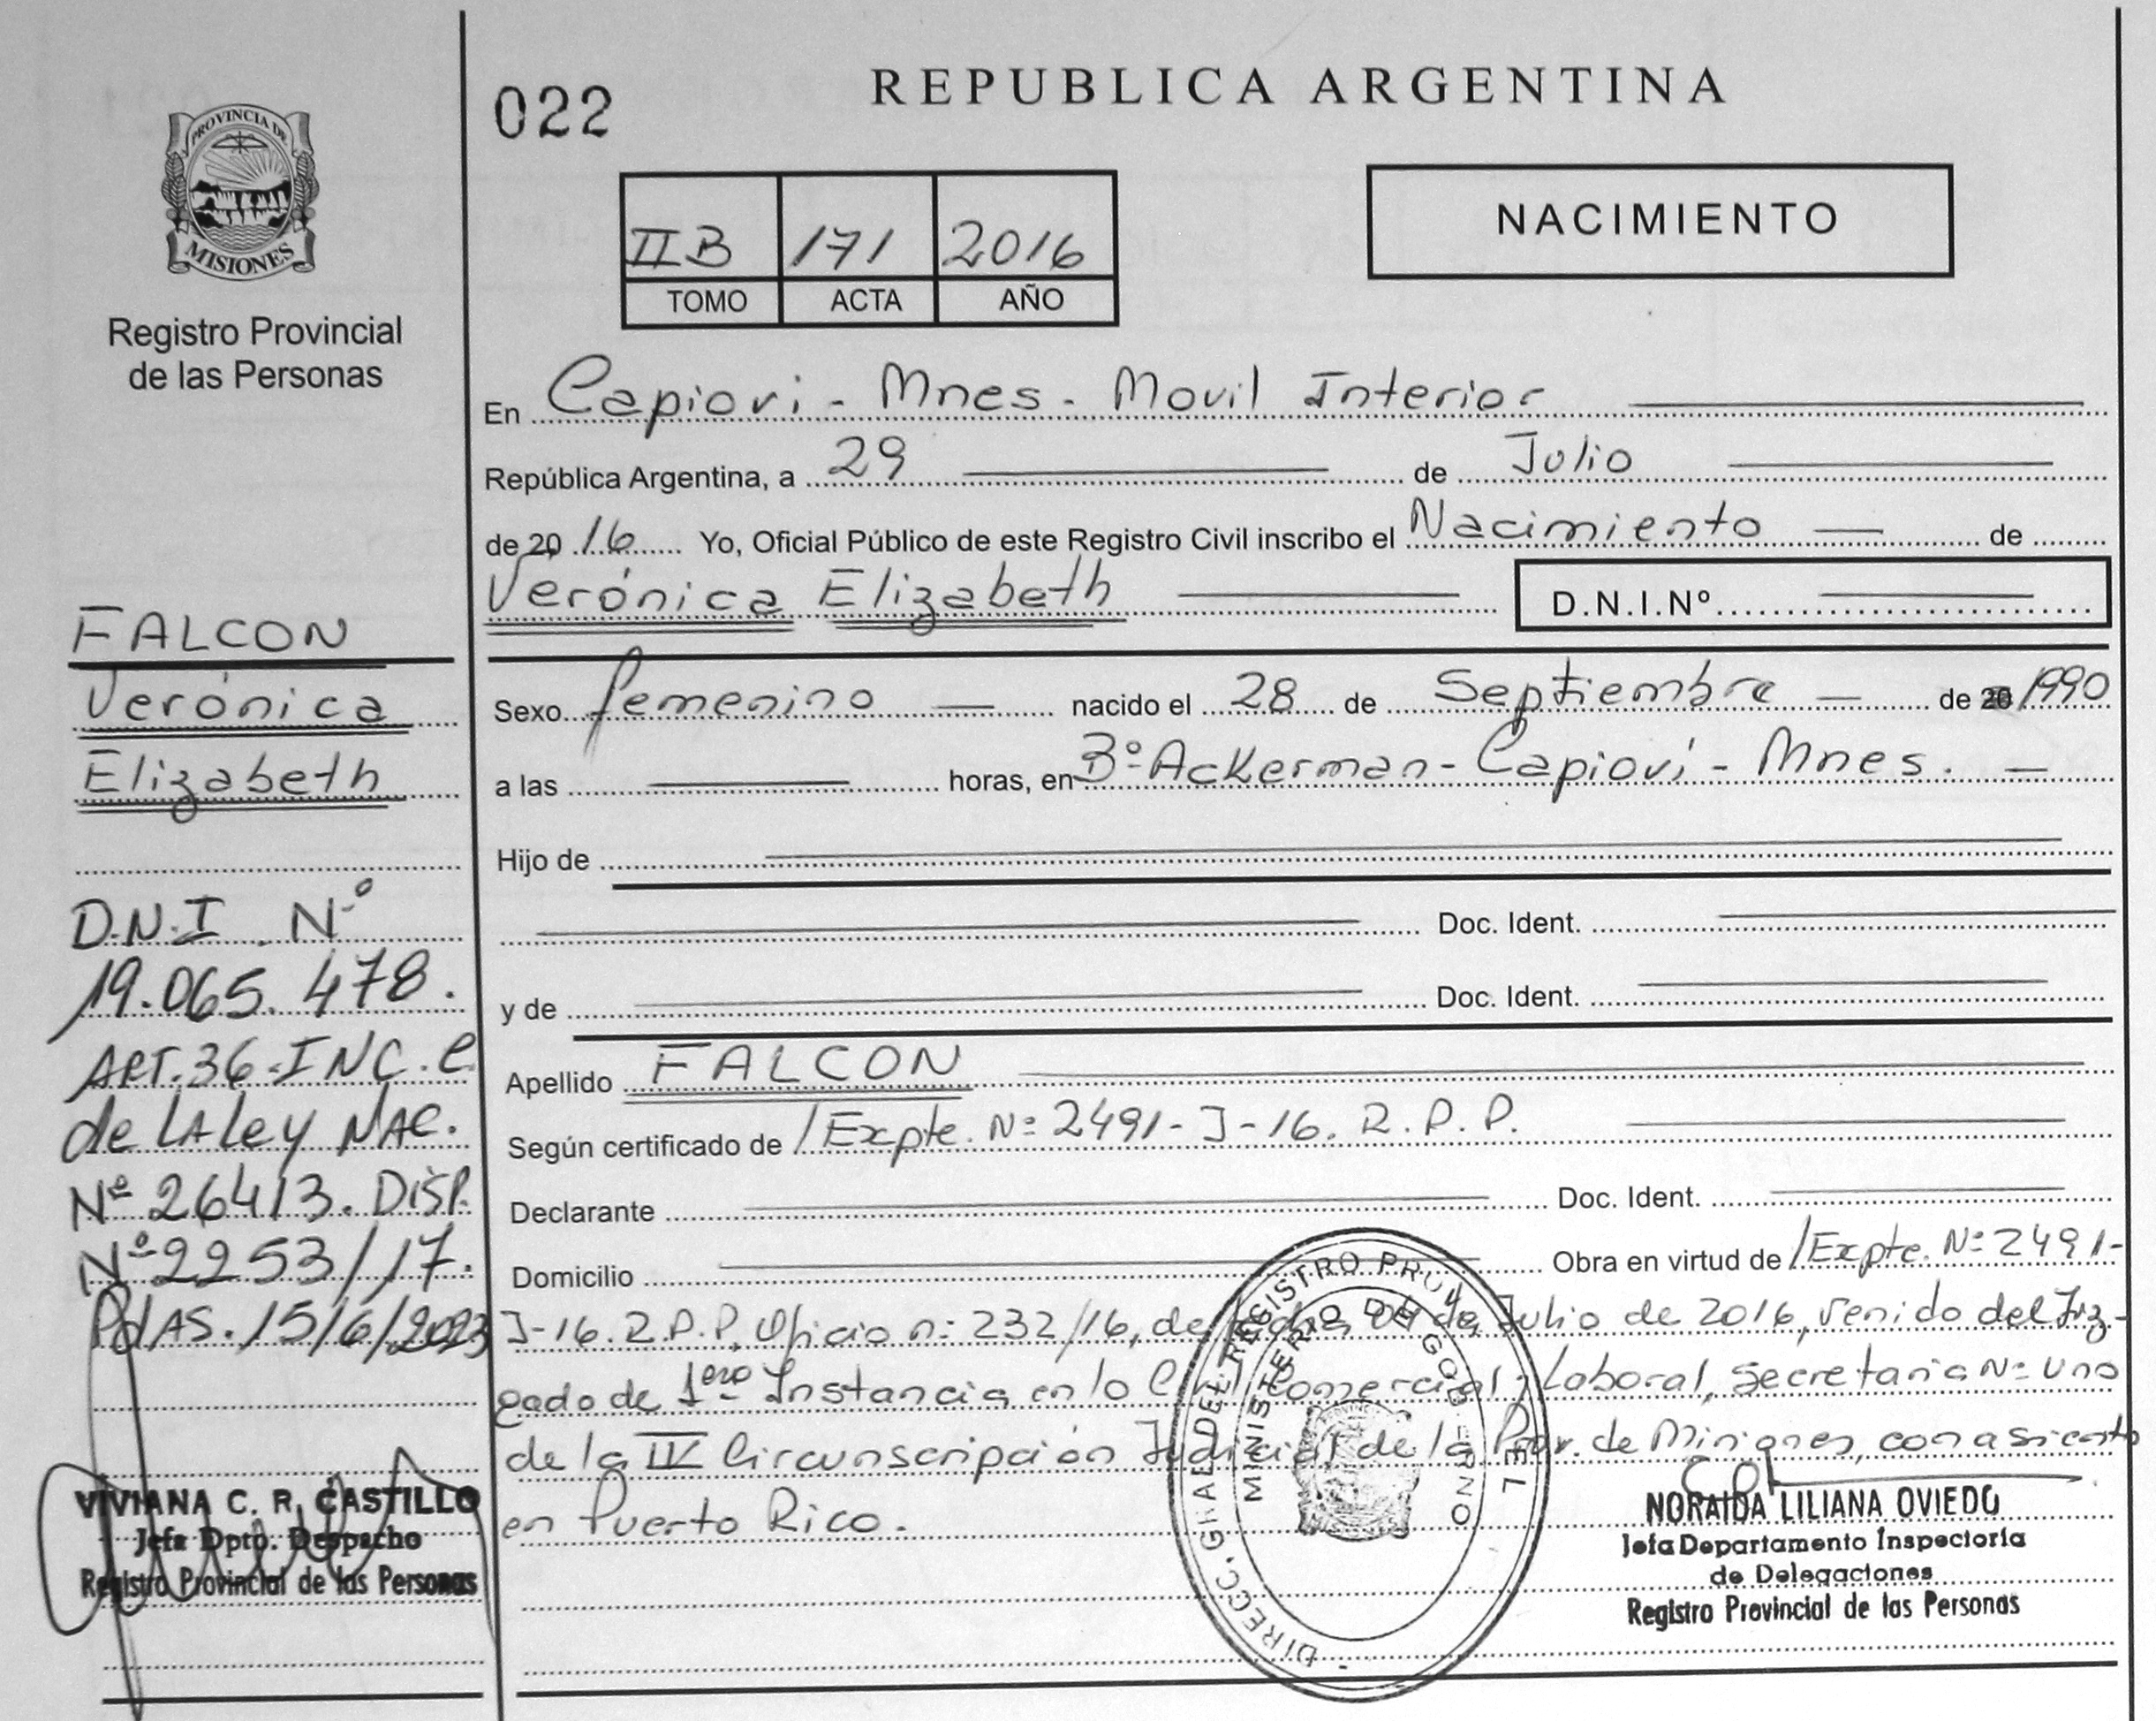 PROVINCIA DE
MISIONES
Registro Provincial
de las Personas
FALCON
Verónica
Elizabeth
D.N.I. Nº
19.065.478.
ART.36-INC. C
de LA Ley NAC.
Nº 26413. DISP.
Nº 2253/17.
PdAS. 15/6/2023
VIVIANA C. R. CASTILLO
Jefa Dpto. Despacho
Registro Provincial de las Personas
022
REPUBLICA ARGENTINA
II B 171 2016
TOMO ACTA AÑO
NACIMIENTO
En Capiovi - Mnes - Movil Interior
República Argentina, a 29 de Julio
de 2016 Yo, Oficial Público de este Registro Civil inscribo el Nacimiento de
Verónica Elizabeth D.N.I.Nº
Sexo femenino nacido el 28 de Septiembre de 20 1990
a las horas, en Bº Ackerman - Capioví - Mnes.
Hijo de
Doc. Ident.
y de Doc. Ident.
Apellido FALCON
Según certificado de /Expte. Nº 2491-J-16. R.P.P.
Declarante Doc. Ident.
Domicilio Obra en virtud de /Expte. Nº 2491-
J-16.R.P.P, Oficio nº 232/16, de fecha de Julio de 2016, venido del Juz-
gado de 1era Instancia en lo Civil, Comercial y Laboral, Secretaria Nº Uno
de la IV Circunscripción Judicial de la Prov. de Misiones, con asiento
en Puerto Rico.
DIRECC. GRAL DEL REGISTRO PROV. DEL
MINISTERIO DE GOBIERNO
NORAIDA LILIANA OVIEDO
Jefa Departamento Inspectoría
de Delegaciones
Registro Provincial de las Personas